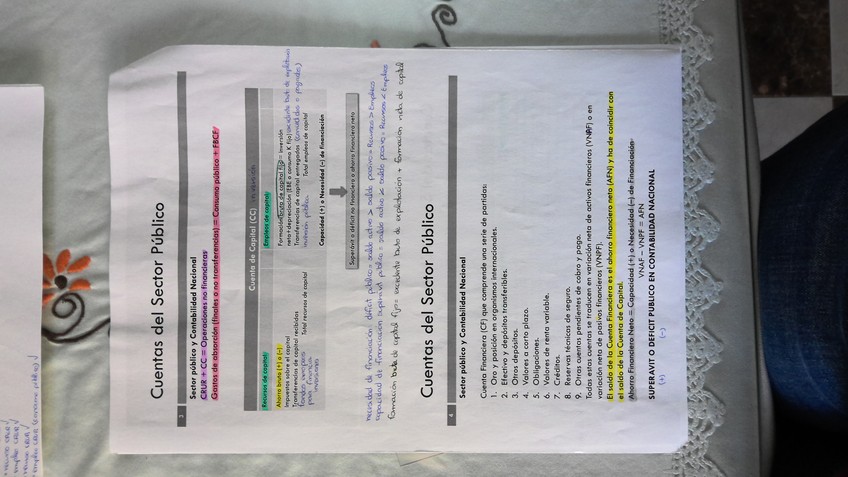 Cuentas del Sector Público
3
Sector público y Contabilidad Nacional
CRUR + CC = Operaciones no financieras
Gastos de absorción (finales o no transferencias) = Consumo público + FBCF
Cuenta de Capital (CC)
Recursos de capital:
Empleos de capital:
Ahorro bruto (+) o (-)
Impuestos sobre el capital
Transferencias de capital recibidas
fondos europeos
para financiar
inversiones
Total recursos de capital
Formación bruta de capital fijo = inversión
neta+depreciación (EBE o consumo K fijo) excedente bruto de explotación
Transferencias de capital entregadas (concedidas o pagadas)
inversión pública
Total empleos de capital
Capacidad (+) o Necesidad (-) de financiación
Superávit o déficit no financiero o ahorro financiero neto
necesidad de financiación déficit público = saldo activo > saldo pasivo = Recursos > Empleos
capacidad de financiación superávit público = saldo activo < saldo pasivo = Recursos < Empleos
formación bruta de capital fijo = excedente bruto de explotación + formación neta de capital
Cuentas del Sector Público
4
Sector público y Contabilidad Nacional
Cuenta Financiera (CF) que comprende una serie de partidas:
1. Oro y posición en organismos internacionales.
2. Efectivo y depósitos transferibles.
3. Otros depósitos.
4. Valores a corto plazo.
5. Obligaciones.
6. Valores de renta variable.
7. Créditos.
8. Reservas técnicas de seguro.
9. Otras cuentas pendientes de cobro y pago.
Todas estas cuentas se traducen en variación neta de activos financieros (VNAF) o en
variación neta de pasivos financieros (VNPF).
El saldo de la Cuenta Financiera es el ahorro financiero neto (AFN) y ha de coincidir con
el saldo de la Cuenta de Capital.
Ahorro Financiero Neto = Capacidad (+) o Necesidad (-) de Financiación
VNAF - VNPF = AFN
SUPERAVIT O DEFICIT PUBLICO EN CONTABILIDAD NACIONAL
(+) (-)